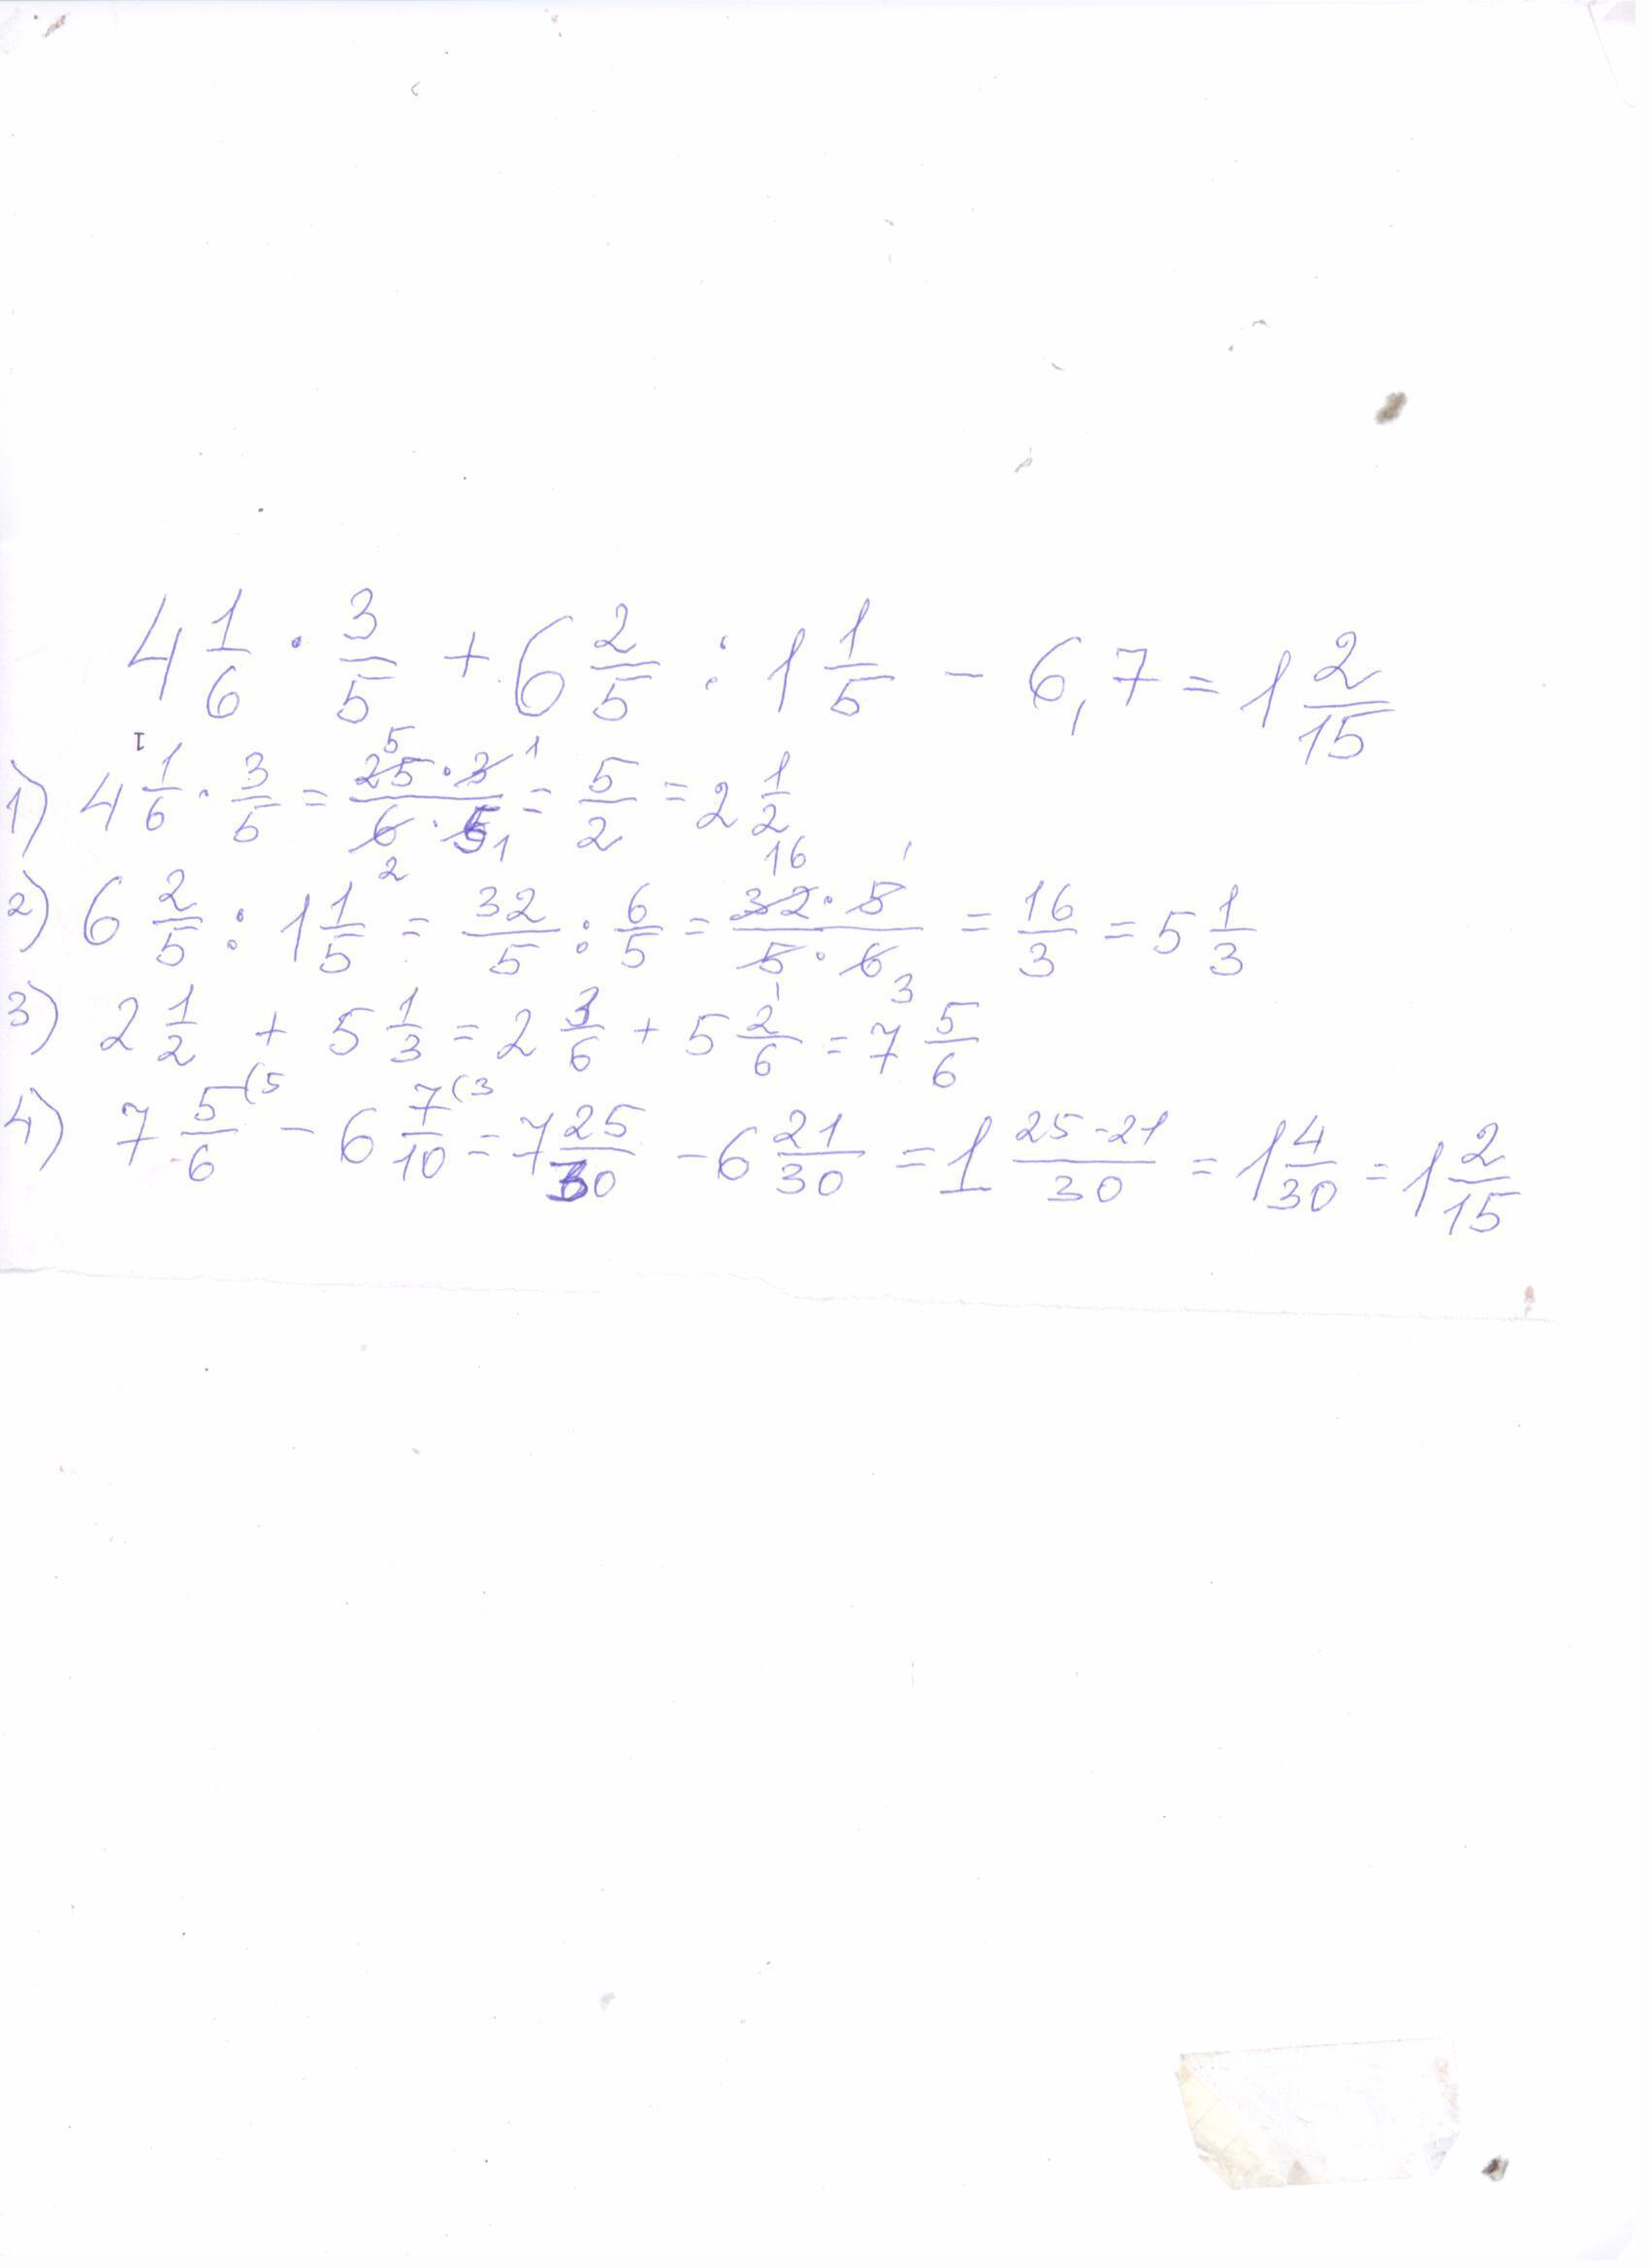 4 1/6 · 3/5 + 6 2/5 : 1 1/5 − 6,7 = 1 2/15
1) 4 1/6 · 3/5 = 25 · 3 / 6 · 5 = 5/2 = 2 1/2
2) 6 2/5 : 1 1/5 = 32/5 : 6/5 = 32 · 5 / 5 · 6 = 16/3 = 5 1/3
3) 2 1/2 + 5 1/3 = 2 3/6 + 5 2/6 = 7 5/6
4) 7 5/6 (5 − 6 7/10 (3 = 7 25/30 − 6 21/30 = 1 25-21/30 = 1 4/30 = 1 2/15